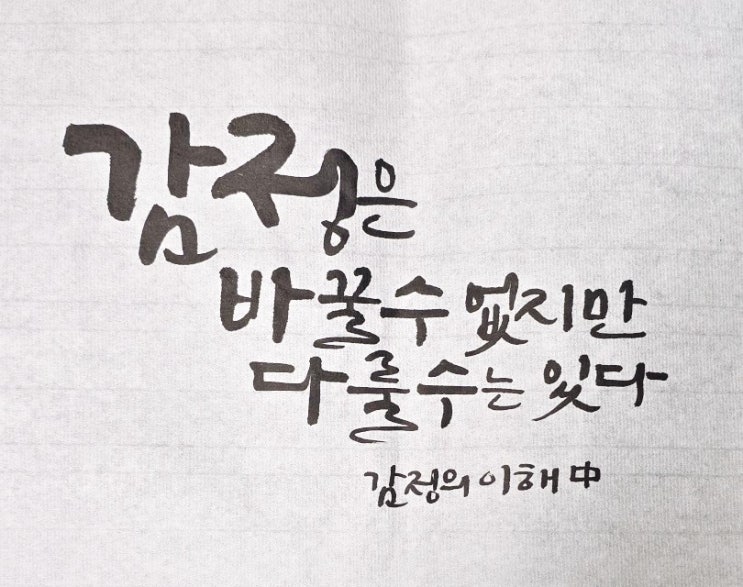 감정은
바꿀수 없지만
다룰수는 있다
감정의 이해 中